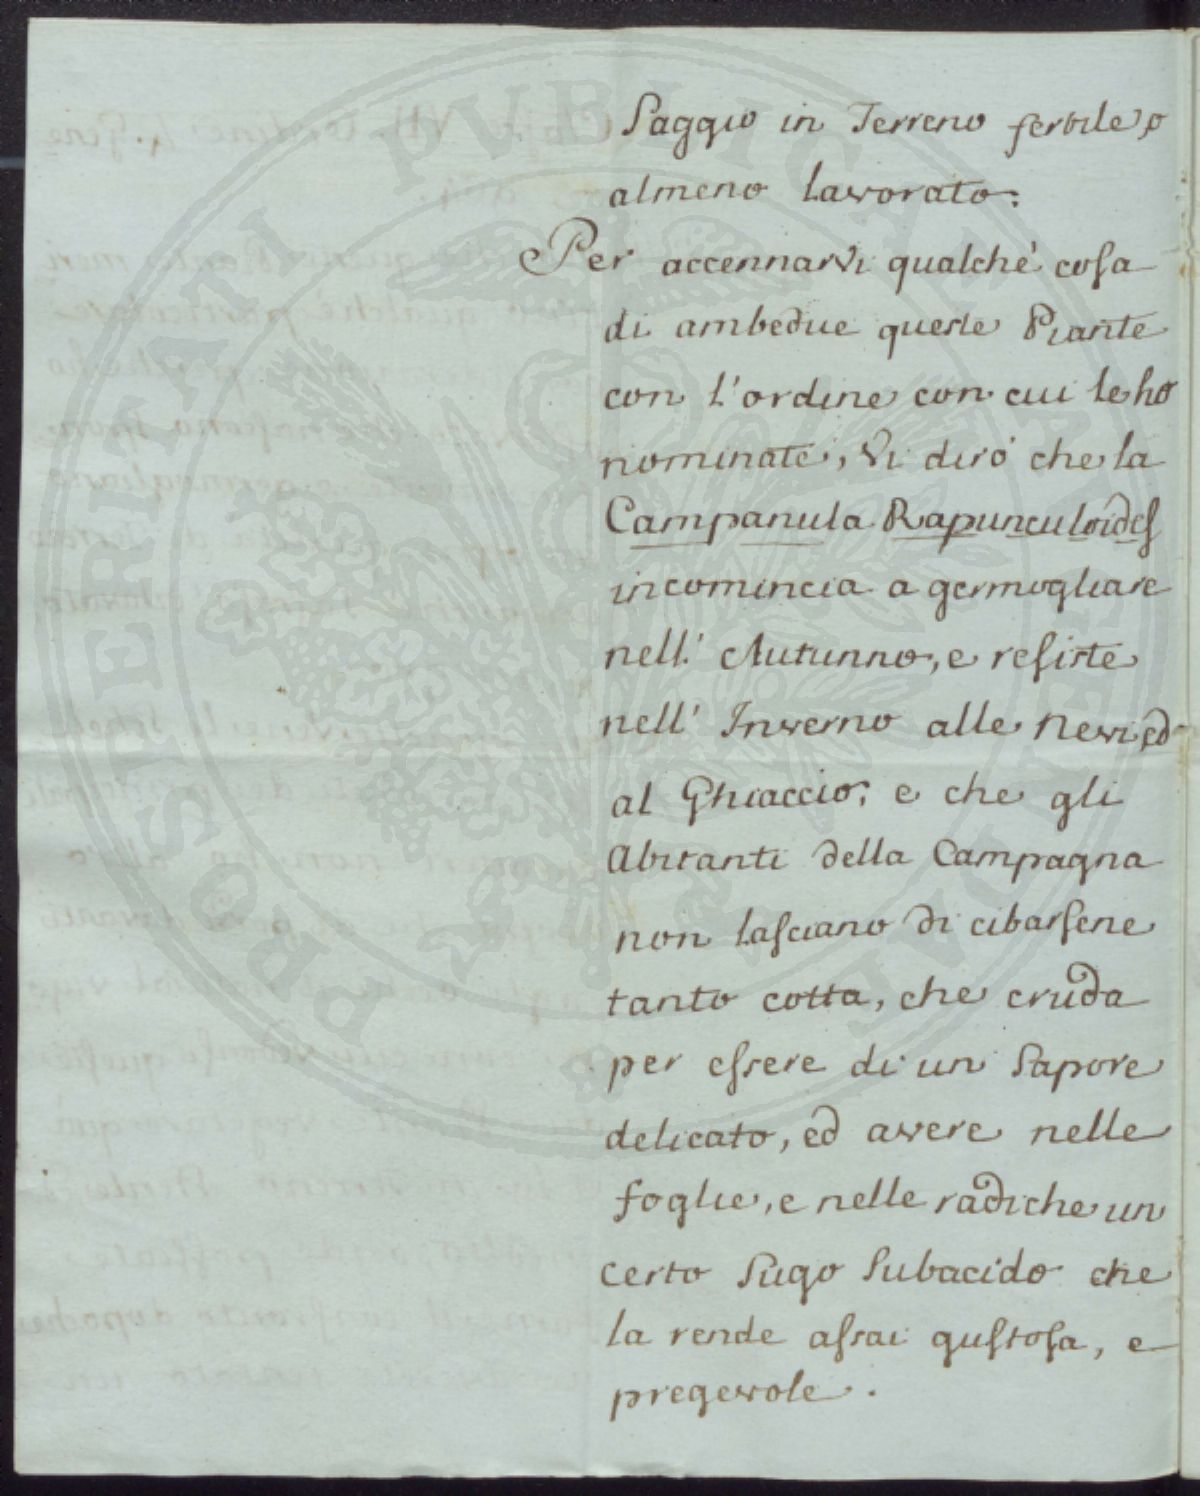 Saggio in Terreno fertile, o
almeno lavorato.
Per accennarvi qualchè cosa
di ambedue queste Piante
con l'ordine con cui le ho
nominate, vi dirò che la
Campanula Rapunculoides
incomincia a germogliare
nell' Autunno, e resiste
nell' Inverno alle nevi, ed
al Ghiaccio; e che gli
Abitanti della Campagna
non lasciano di cibarsene
tanto cotta, che cruda
per essere di un sapore
delicato, ed avere nelle
foglie, e nelle radiche un
certo sugo subacido che
la rende assai gustosa, e
pregevole.
PROSPERITATI PUBLICAE AUGENDAE